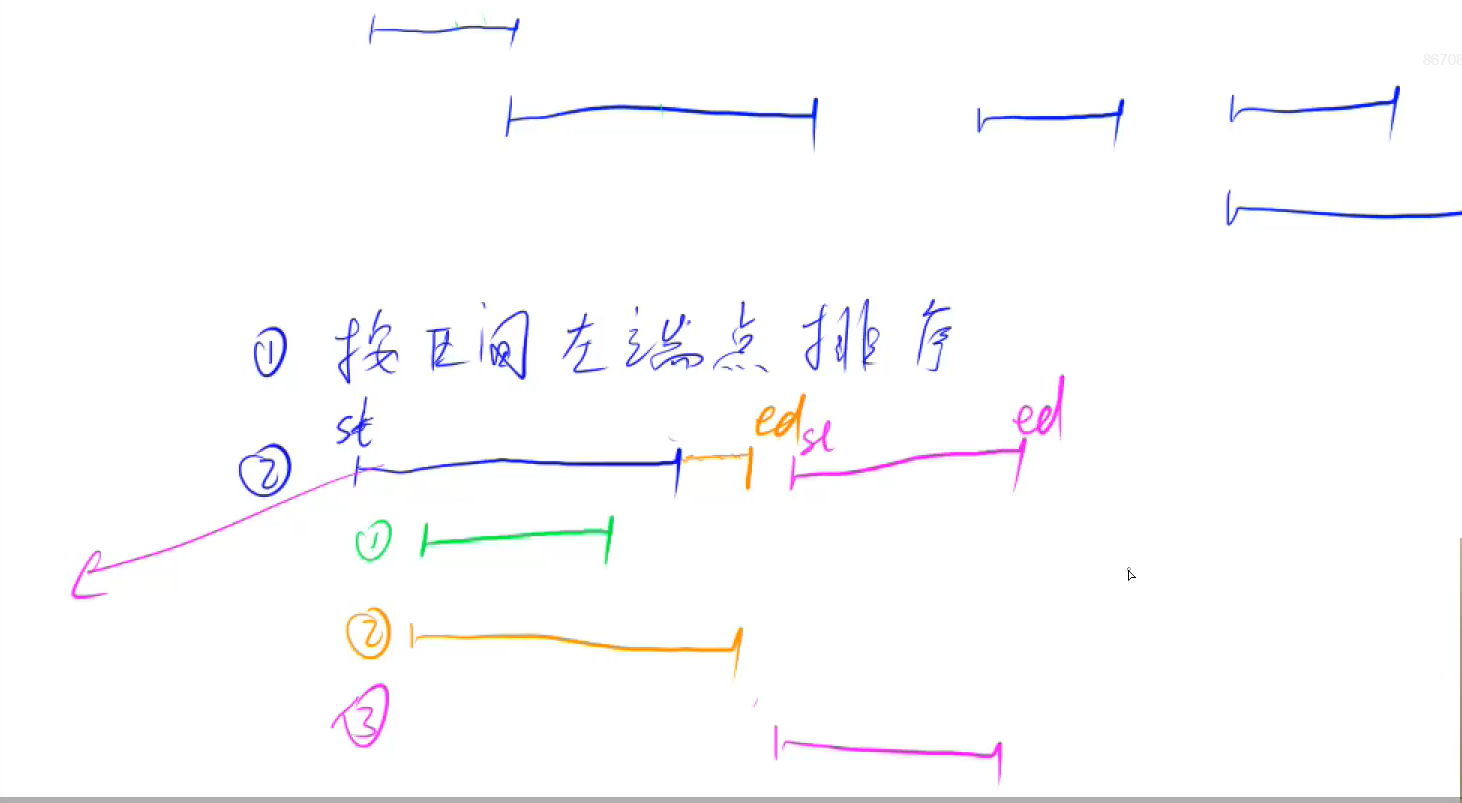 86708
① 按区间左端点排序
st ed st ed
②
①
②
③